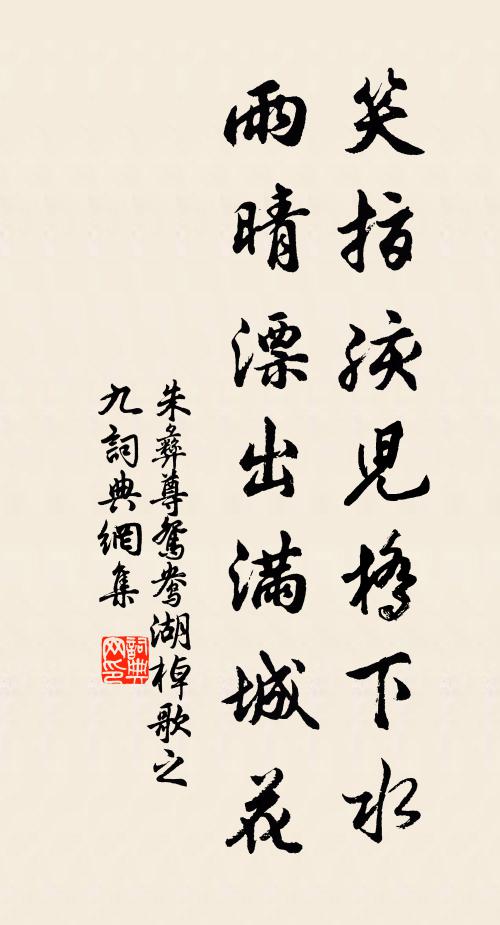 笑指孩兒橋下水
雨晴漂出滿城花
朱彝尊鴛鴦湖棹歌之
九詞典網集
詞典網印